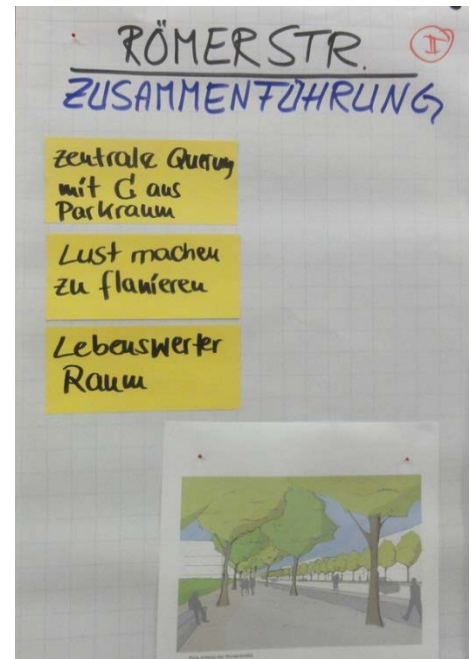 RÖMERSTR.
II
ZUSAMMENFÜHRUNG
zentrale Querung
mit G aus
Parkraum
Lust machen
zu flanieren
Lebenswerter
Raum